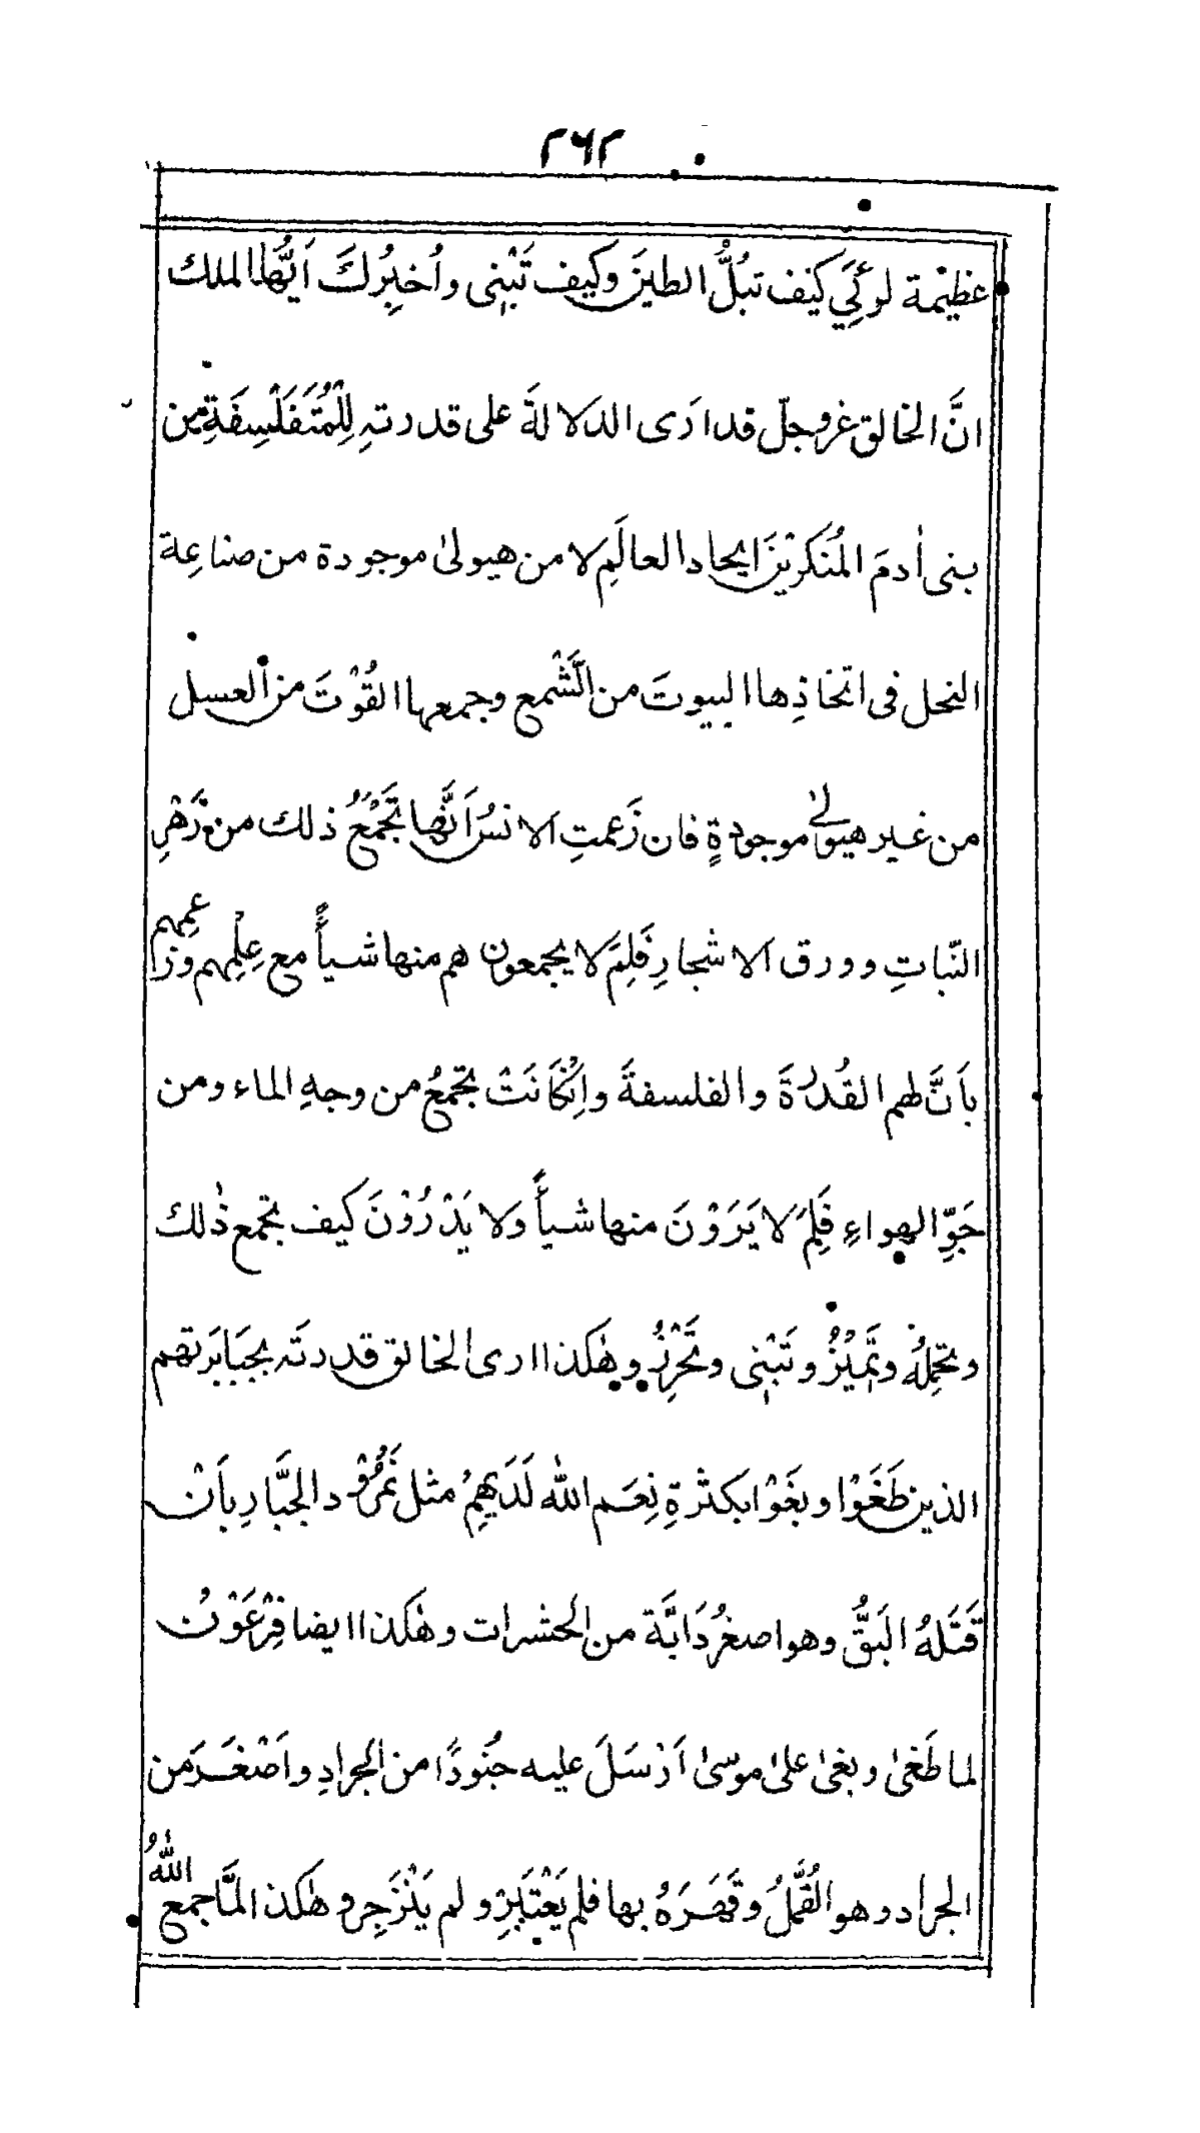 ٢٦٢
عظيْمة لو رُئِيَ كيف تبُلُّ الطينَ وكيف تَبْنِى واُخبِرُكَ اَيُّها الملك
انَّ الخالق عزوجلّ قد ارَى الدلالةَ على قدرتهٖ لِلْمُتَفَلْسِفَةِ من
بنى اٰدمَ المُنكرِيْنَ ايجادَ العالَمِ لا من هيولىٰ موجودة من صناعِة
النحل فى اتخاذِها البيوتَ من الشَّمْع وجمعها القُوْتَ من العسل
من غير هيولىٰ موجودةٍ فان زَعمتِ الانسُ اَنَّها تَجْمَعُ ذلك من زَهْرِ
النّباتِ وورق الاشجارِ فَلِمَ لا يجمعون هم منها شياًً مع عِلْمِهم وزاعِمِهم
بأَنَّ لهم القُدْرَةَ والفلسفةَ واِنْ كَانَتْ تجمَعُ من وجهِ الماء ومن
جَوِّ الهواءِ فَلِمَ لا يَرَوْنَ منها شياًً ولا يَدْرُوْنَ كيف تجمع ذٰلك
وتحمِلُهُ وتَمِيْزُ وتَبْنِى وتَحْرِزُ وهٰكذا ارى الخالق قدرتَه بجَبَابَرتهم
الذين طَغَوْا وبغَوْا بكثْرةِ نِعَم الله لَدَيهِمْ مثل نَمْرُوْد الجبَّارِ بأَنْ
قَتَلَهُ البَقُّ وهو اصغرُ دَابَّة من الحشرات وهٰكذا ايضا فِرْعَوْنُ
لما طَغىٰ وبغىٰ علىٰ موسىٰ اَرْسَلَ عليه جُنُودًا من الجرادِ واَصْغَرَ من
الجراد وهو القُمَّلُ وقَهَرَهُ بها فلم يَعْتَبِرْ ولم يَنْزَجِر وهٰكذا لمَّا جمع اللهُ